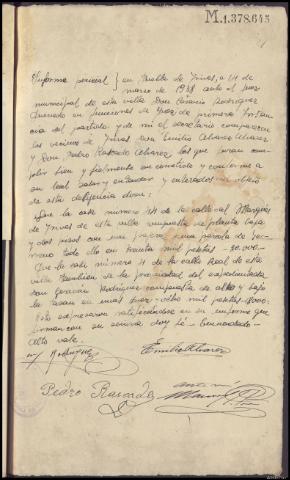 M.1.378.645
Informe pericial } en Puebla de Trives, a 14 de
marzo de 1938 ante el juez
municipal de esta villa Don Casario Rodriguez
en funciones de Juez de primera Instan-
cia del partido y de mi el secretario comparecen
los vecinos de Trives Don Emilio Alvarez Alvarez
y Don Pedro Alvarez, los que juran cum-
plir bien y fielmente su cometido y conforme a
su leal saber y entender y enterados del objeto
de esta diligencia dicen:
Que la casa numero 14 de la calle del Marques
de Trives de esta villa compuesta de planta baja
y dos pisos con una y una parcela de te-
rreno todo ello en treinta mil pesetas - 30.000-
Que la casa numero 4 de la calle Real de esta
villa tambien de la propiedad del expedientado
Don Rodriguez compuesta de alto y bajo
la tasan en unas ocho mil pesetas. 8000:
Esto expresaron ratificandose en su informe que
firman con su señoria doy fé - Enmendado-
alto vale.
Rodriguez
Emilio Alvarez
Pedro